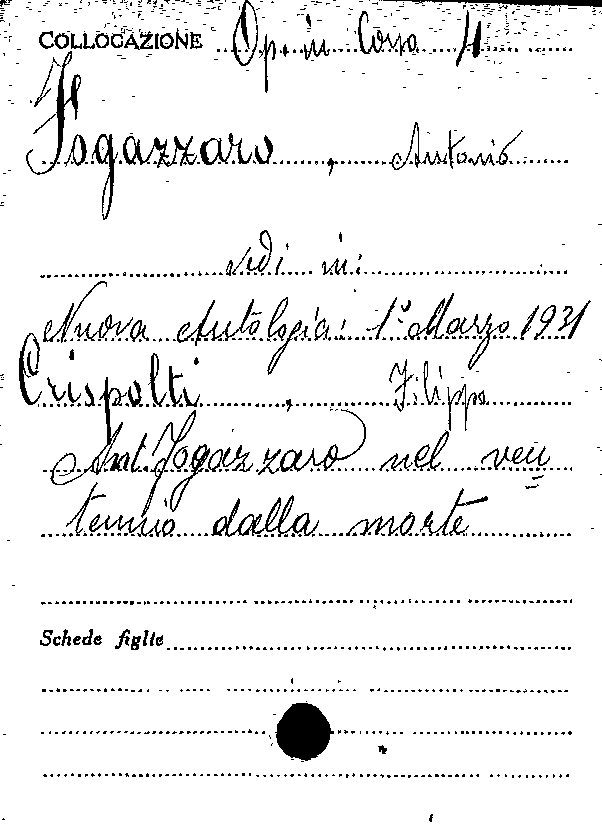 COLLOCAZIONE Op. in Corso 4
Fogazzaro, Antonio
vedi in:
Nuova Antologia: 1° Marzo 1931
Crispolti, Filippo
Ant. Fogazzaro nel ven
tennio dalla morte
Schede figlie